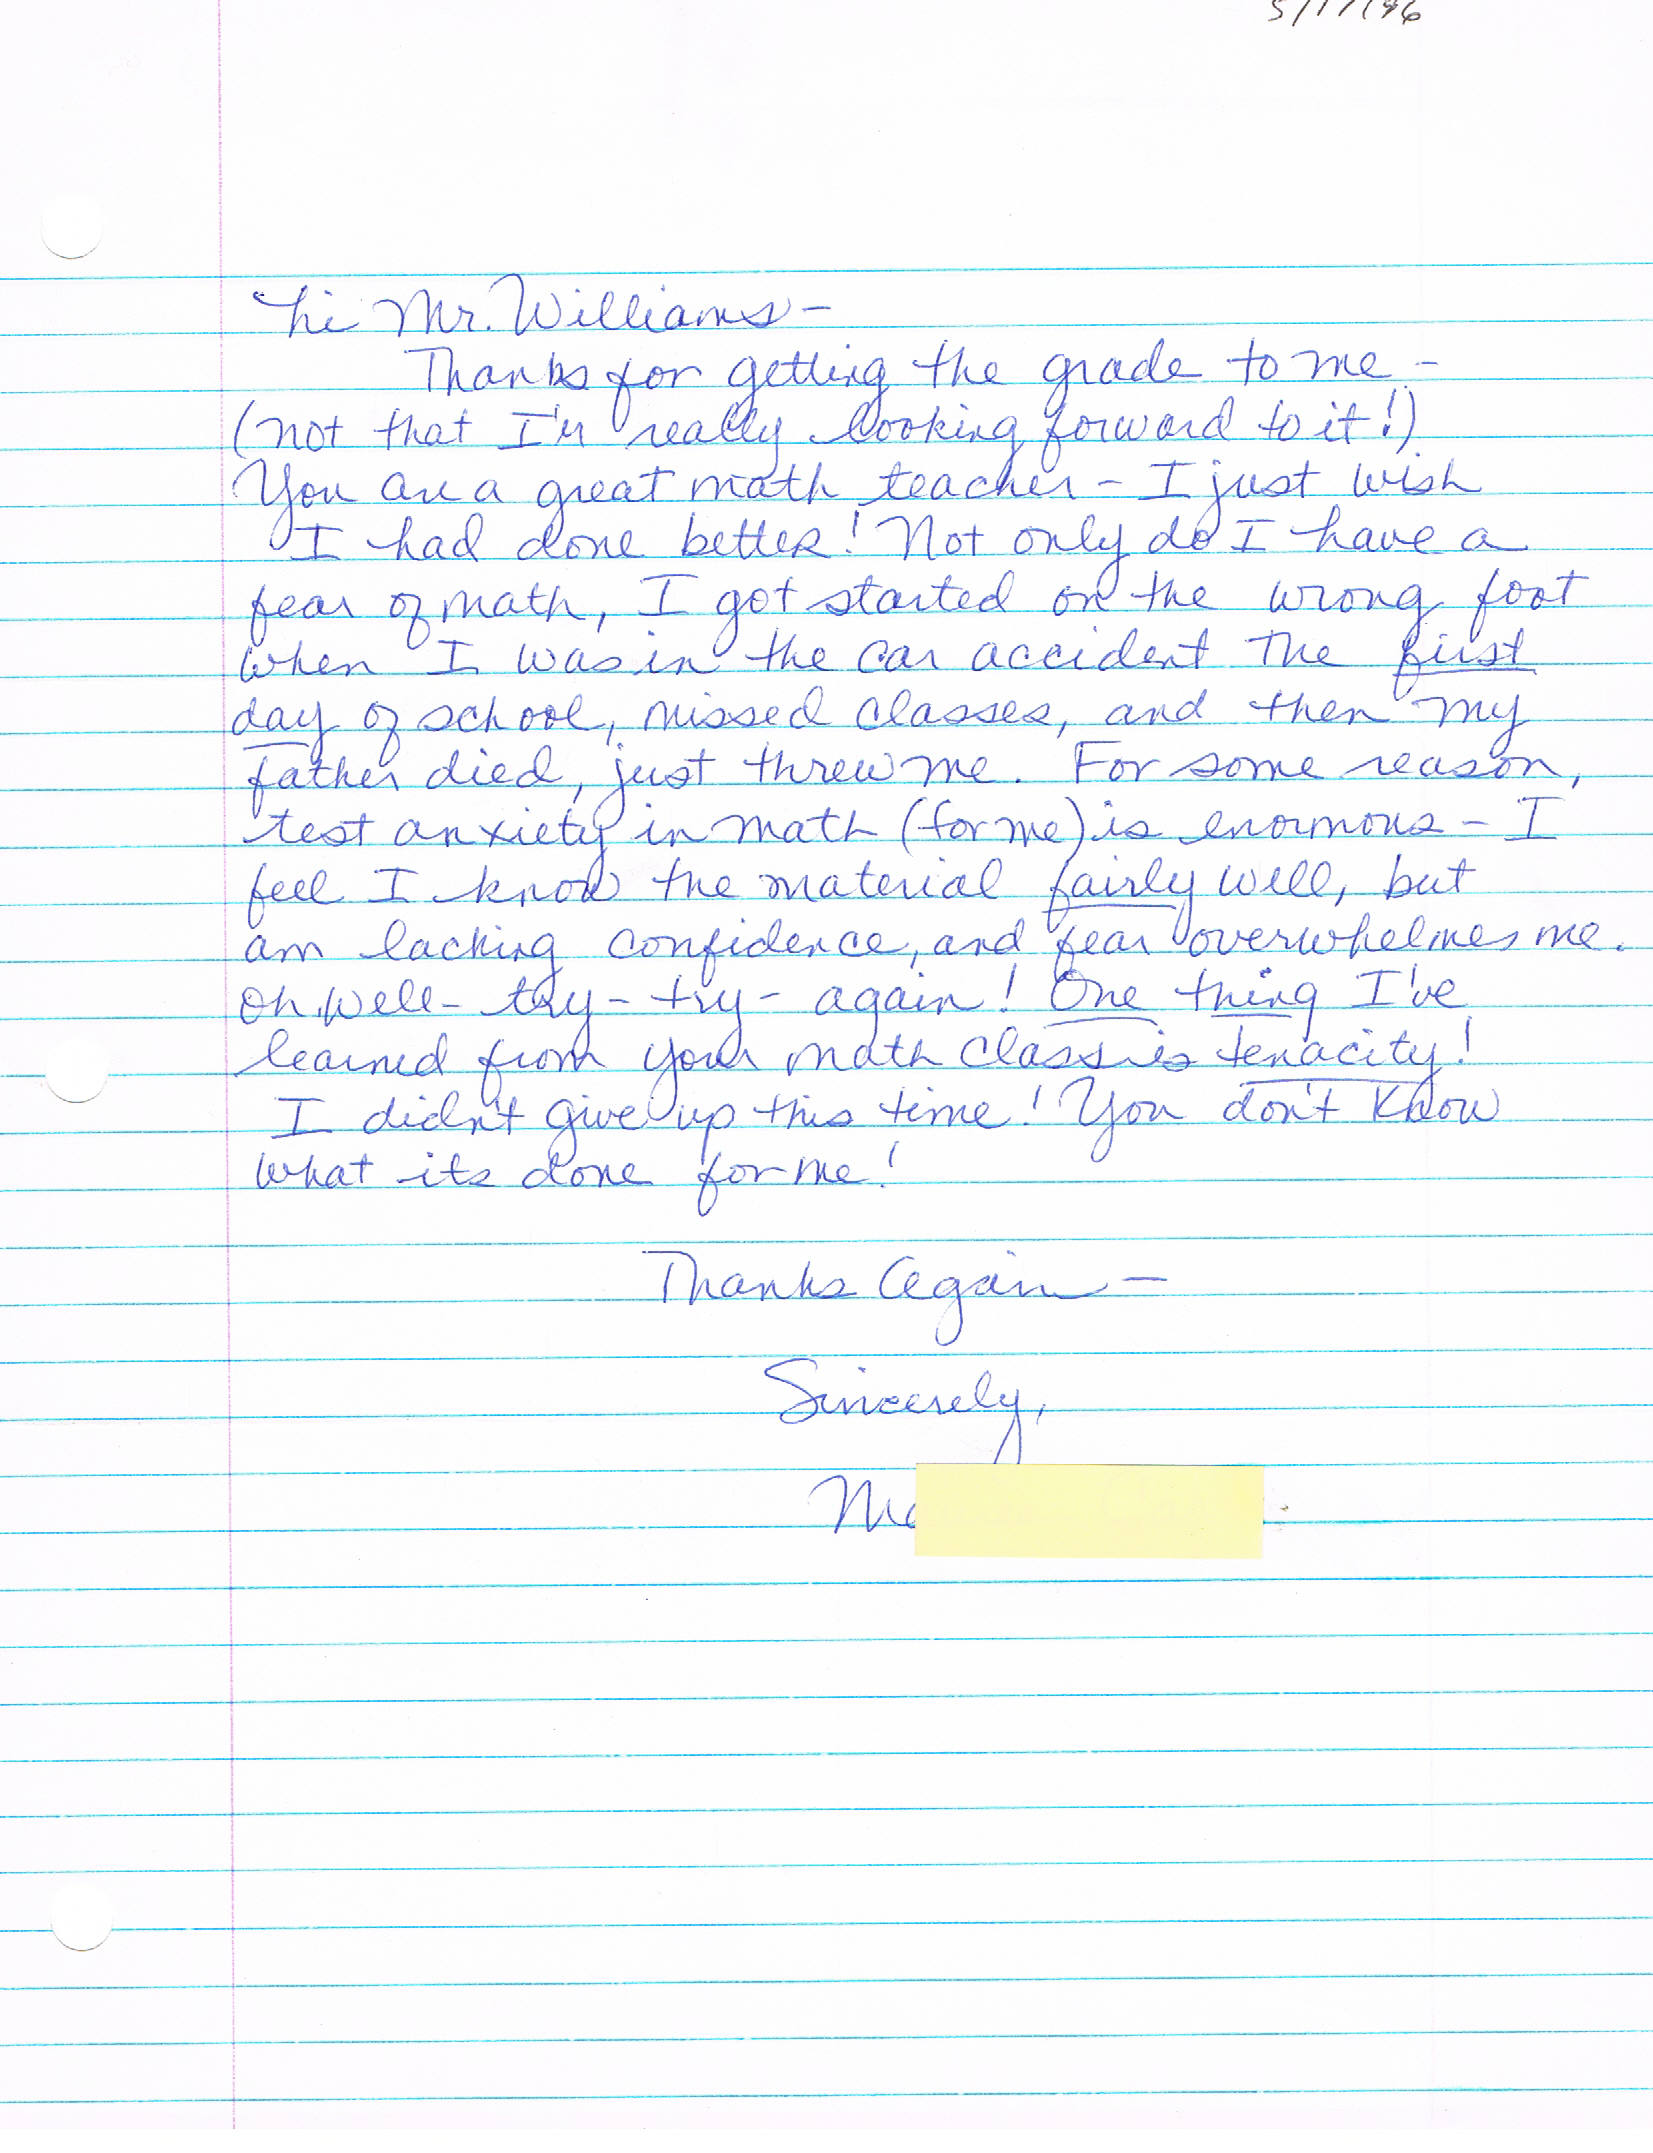 5/17/96
hi Mr. Williams -
Thanks for getting the grade to me -
(not that I'm really looking forward to it!)
You are a great math teacher - I just wish
I had done better! Not only do I have a
fear of math, I got started on the wrong foot
when I was in the car accident the first
day of school, missed classes, and then my
father died, just threw me. For some reason,
test anxiety in math (for me) is enormous - I
feel I know the material fairly well, but
am lacking confidence, and fear overwhelmes me.
Oh, well - try - try - again! One thing I've
learned from your math class is tenacity!
I didn't give up this time! You don't know
what its done for me!
Thanks Again -
Sincerely,